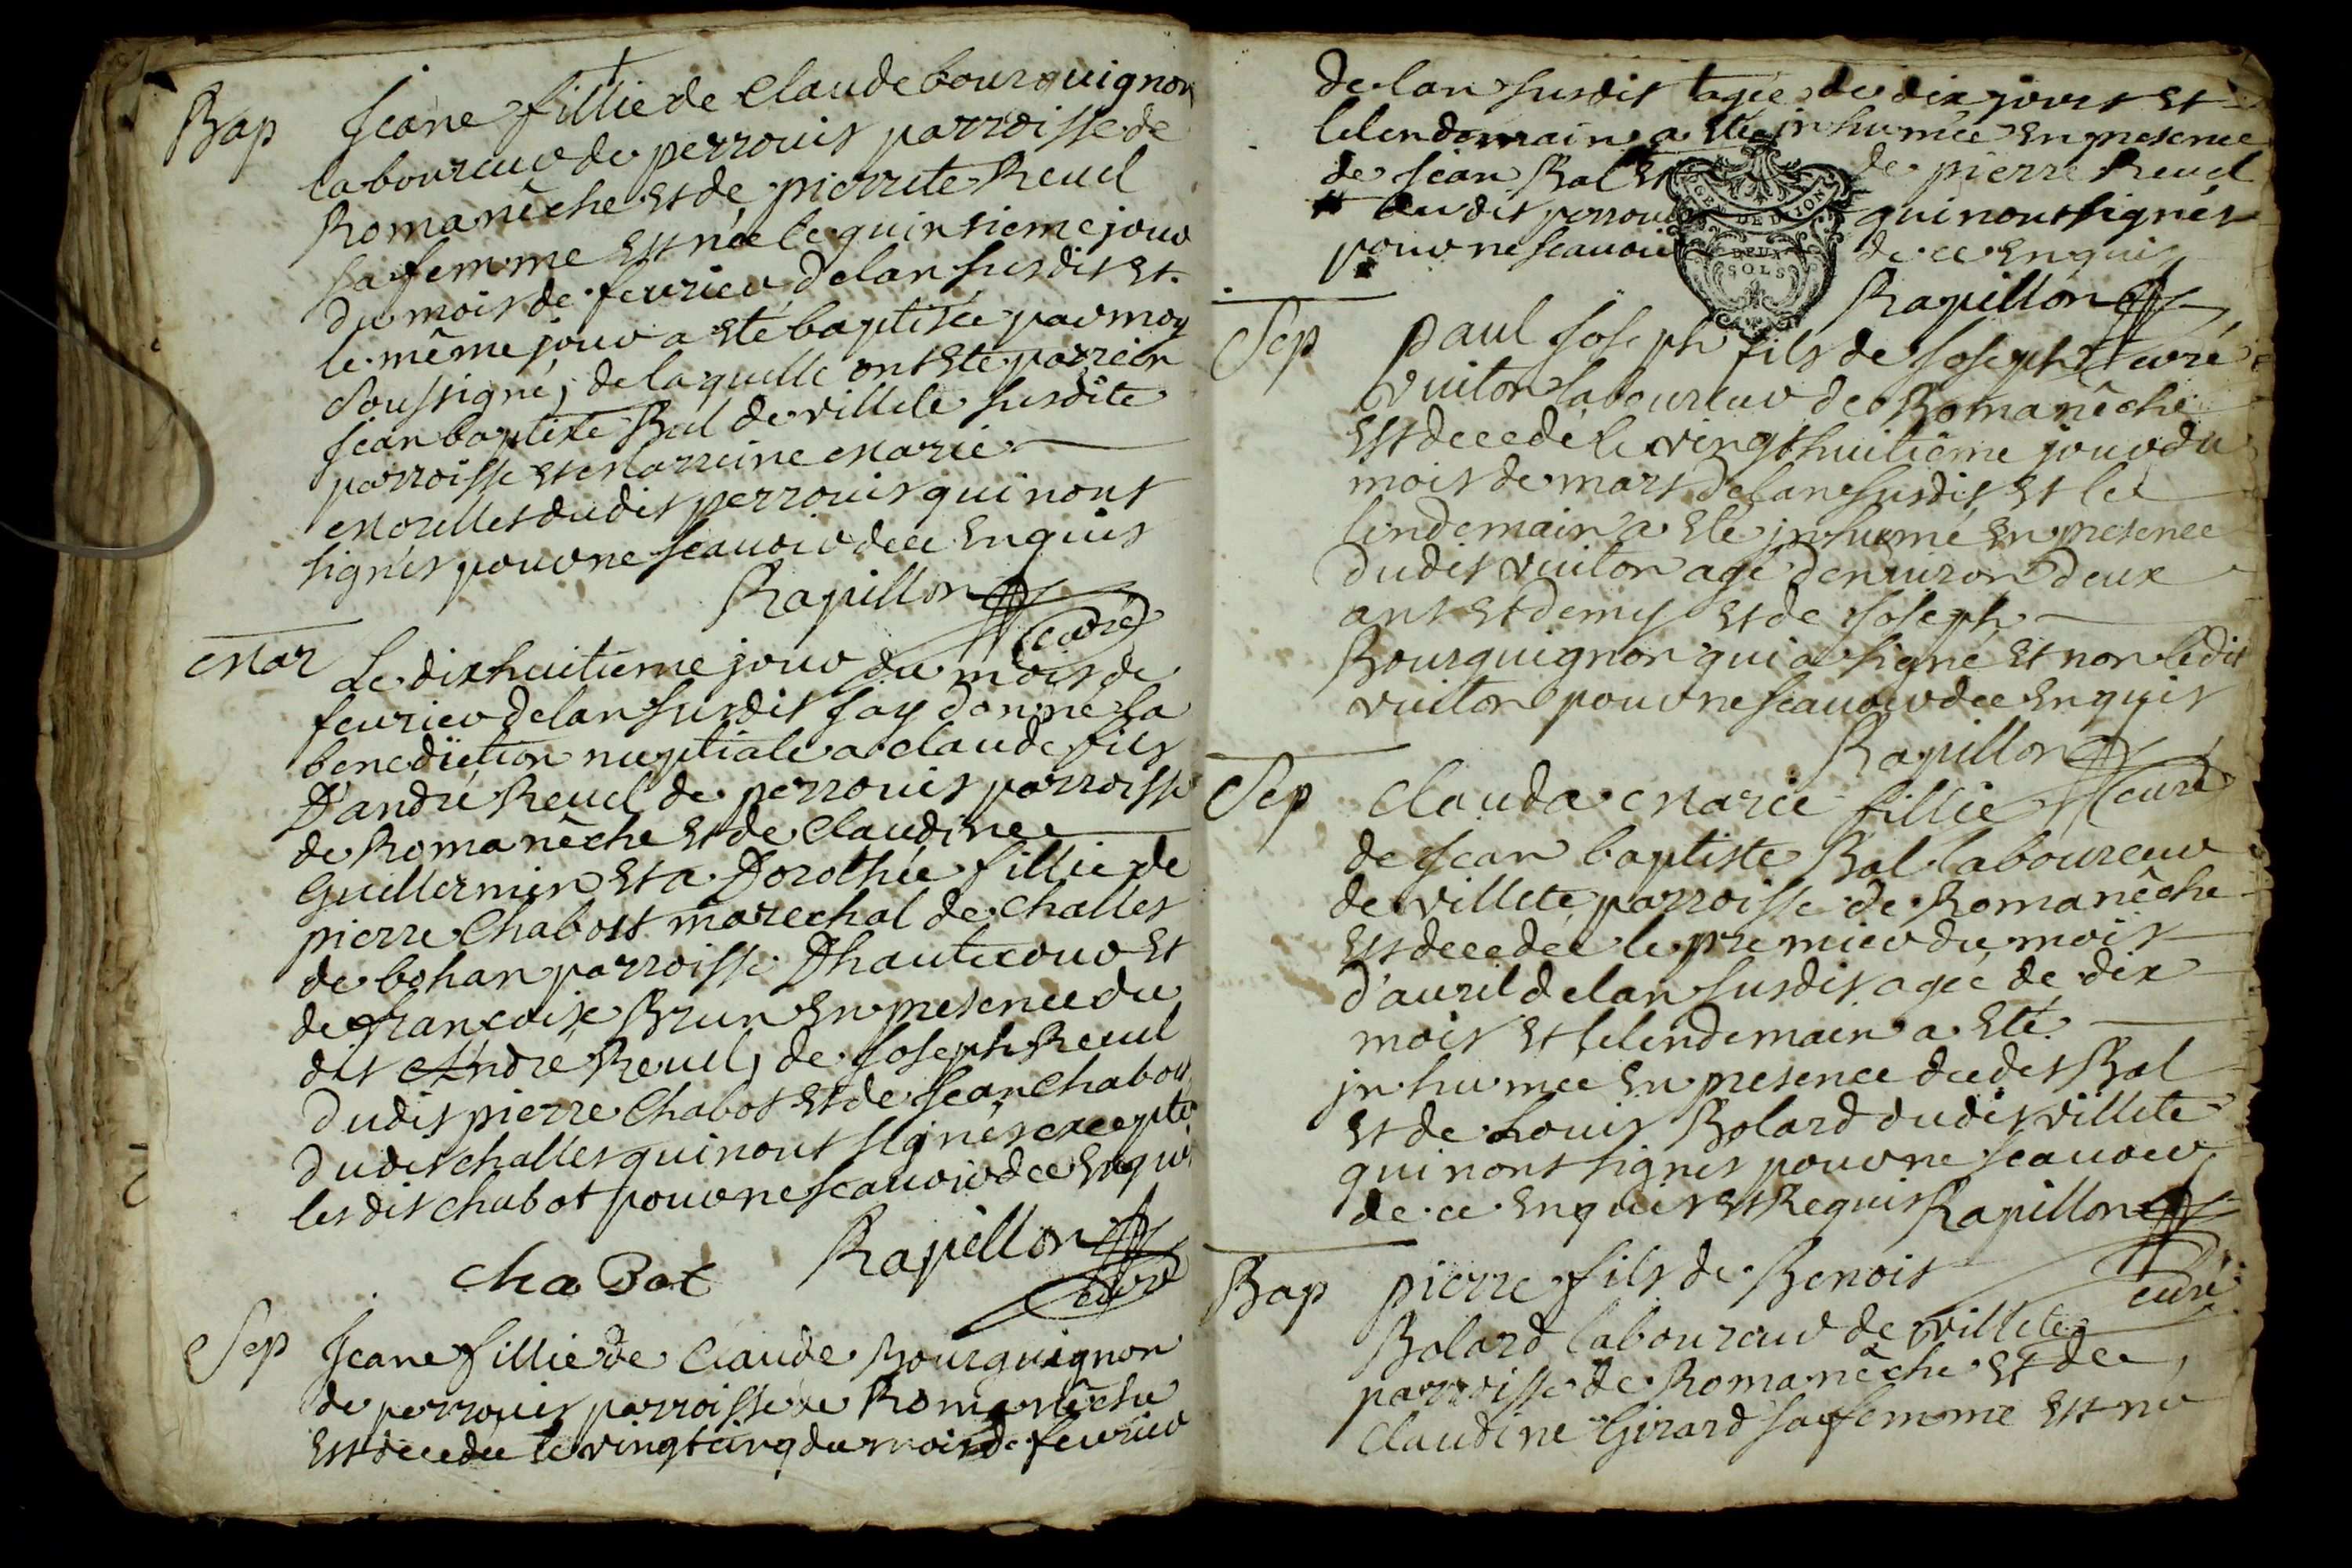 Bap Jeane fillie de Claude bourguignon
laboureur de perrouis parroisse de
Romanêche et de pierrete Reud
sa femme est née le quinsieme jour
du mois de feurier delan susdit et
le même jour a eté baptisée par moy
soussigné, de laquelle ont eté parrein
jean baptiste Bal de villete susdite
parroisse et Marreine Marie
Morelles dudit perrouis qui nont
signés pour ne scauoir de ce enquis
Rapillon
curé
Mar Le dixhuitieme jour du mois de
feurier delan susdit jay donné la
benediction nuptiale a claude fils
D'andré Reud de perrouis parroisse
de Romanêche et de Claudine
Guillermin et a Dorothée fillie de
pierre Chabost marechal de Challes
de bohan parroisse Dhautecour et
de françoise Brun en presence du
dit André Reud, de Joseph Reud
dudit pierre Chabot et de jean Chabot
dudit challes qui nont signés excepté
lesdit chabot pour ne scauoir de ce enquis
Rapillon
cha Bot
curé
Sep Jeane fillie de Claude Bourguignon
de perrouis parroisse de Romanêche
est decedée le vingtcinq du mois de feurier
delan susdit agée de dix jours et
lelendemain a eté inhumée en presence
de jean Bal et de pierre Reud
dudit perrouis qui nont signés
pour ne scauoir de ce enquis
DE DIJON
DEUX
SOLS
Rapillon
curé
Sep paul joseph fils de joseph
vuiton laboureur de Romanêche
est decedé le vingthuitième jour du
mois de mars delan susdit et le
lendemain a eté inhumé en presence
dudit vuiton agé denuiron deux
ans et demy et de joseph
Bourguignon qui a signé et non ledit
vuiton pour ne scauoir de ce enquis
Rapillon
curé
Sep Clauda Marie fillie
de jean baptiste Bal laboureur
de villete parroisse de Romanêche
est decedée le premier du mois
d'auril delan susdit agée de dix
mois et lelendemain a eté
inhumée en presence dudit Bal
et de Louis Bolard dudit villete
qui nont signés pour ne scauoir
de ce enquis et Requis Rapillon
curé
Bap pierre fils de Benois
Bolard laboureur de villete
parroisse de Romanêche et de
Claudine Girard sa femme est né